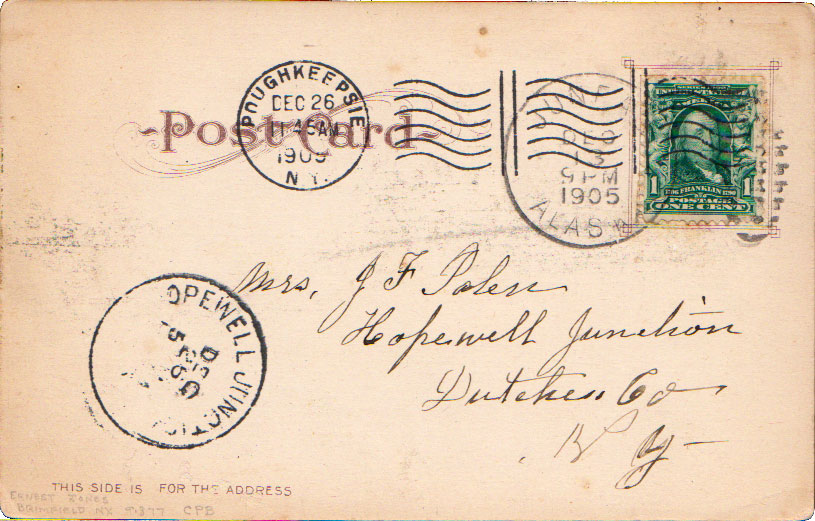 Post Card
POUGHKEEPSIE
DEC 26
11 45 AM
1905
N.Y.
DEC
13
9 PM
1905
ALASK
1 FRANKLIN 1
POSTAGE
ONE CENT
Mrs. J F Polen
Hopewell Junction
Dutchess Co
N Y
OPEWELL JUNCTI
DEC
26
5
THIS SIDE IS FOR THE ADDRESS
ERNEST JONES
NY 9377 CPB